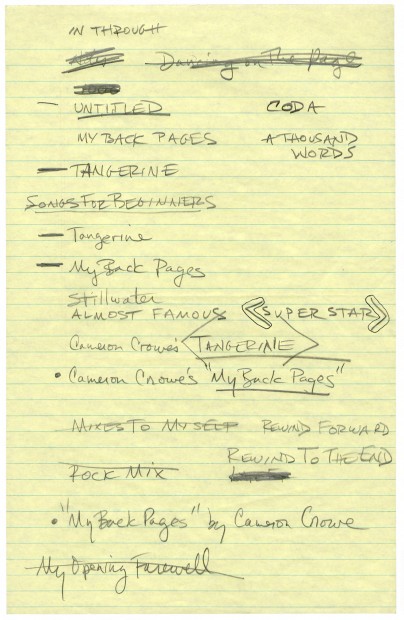 IN THROUGH
Dancing on The Page
UNTITLED CODA
MY BACK PAGES A THOUSAND
WORDS
TANGERINE
SONGS FOR BEGINNERS
Tangerine
My Back Pages
Stillwater
ALMOST FAMOUS SUPER STAR
Cameron Crowe's TANGERINE
• Cameron Crowe's "My Back Pages"
MIXES TO MYSELF REWIND FORWARD
REWIND TO THE END
ROCK MIX
• "My Back Pages" by Cameron Crowe
My Opening Farewell